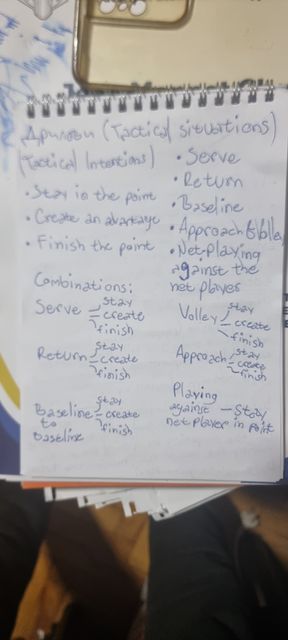 Дрилови (Tactical situations)
(Tactical Intentions)
• Stay in the point
• Create an advantage
• Finish the point
• Serve
• Return
• Baseline
• Approach & Volley
• Net-playing
against the
net player
Combinations:
Serve
stay
create
finish
Return
stay
create
finish
Baseline
to
baseline
stay
create
finish
Volley
stay
create
finish
Approach
stay
create
finish
Playing
against
net player
– Stay
in point